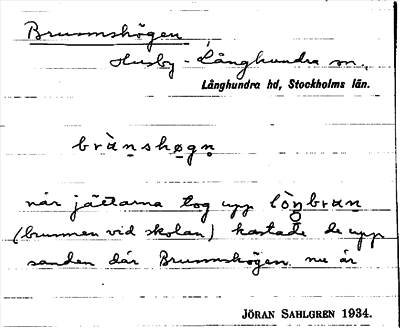 Brunnshögen
Husby-Långhundra sn.
Långhundra hd, Stockholms län.
när jättarna tog upp
(brunnen vid skolan) kastade de upp
sanden där Brunnshögen nu är
JÖRAN SAHLGREN 1934.